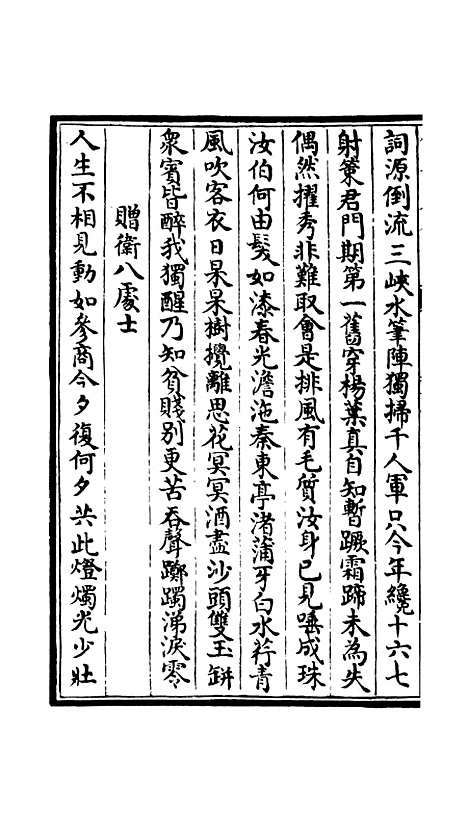 詞源倒流三峽水筆陣獨掃千人軍只今年纔十六七
射策君門期第一舊穿楊葉真自知暫蹶霜蹄未為失
偶然擢秀非難取會是排風有毛質汝身已見唾成珠
汝伯何由髮如漆春光澹沲秦東亭渚蒲牙白水荇青
風吹客衣日杲杲樹攪離思花冥冥酒盡沙頭雙玉缾
衆賓皆醉我獨醒乃知貧賤别更苦吞聲躑躅涕淚零
贈衛八處士
人生不相見動如參商今夕復何夕共此燈燭光少壯